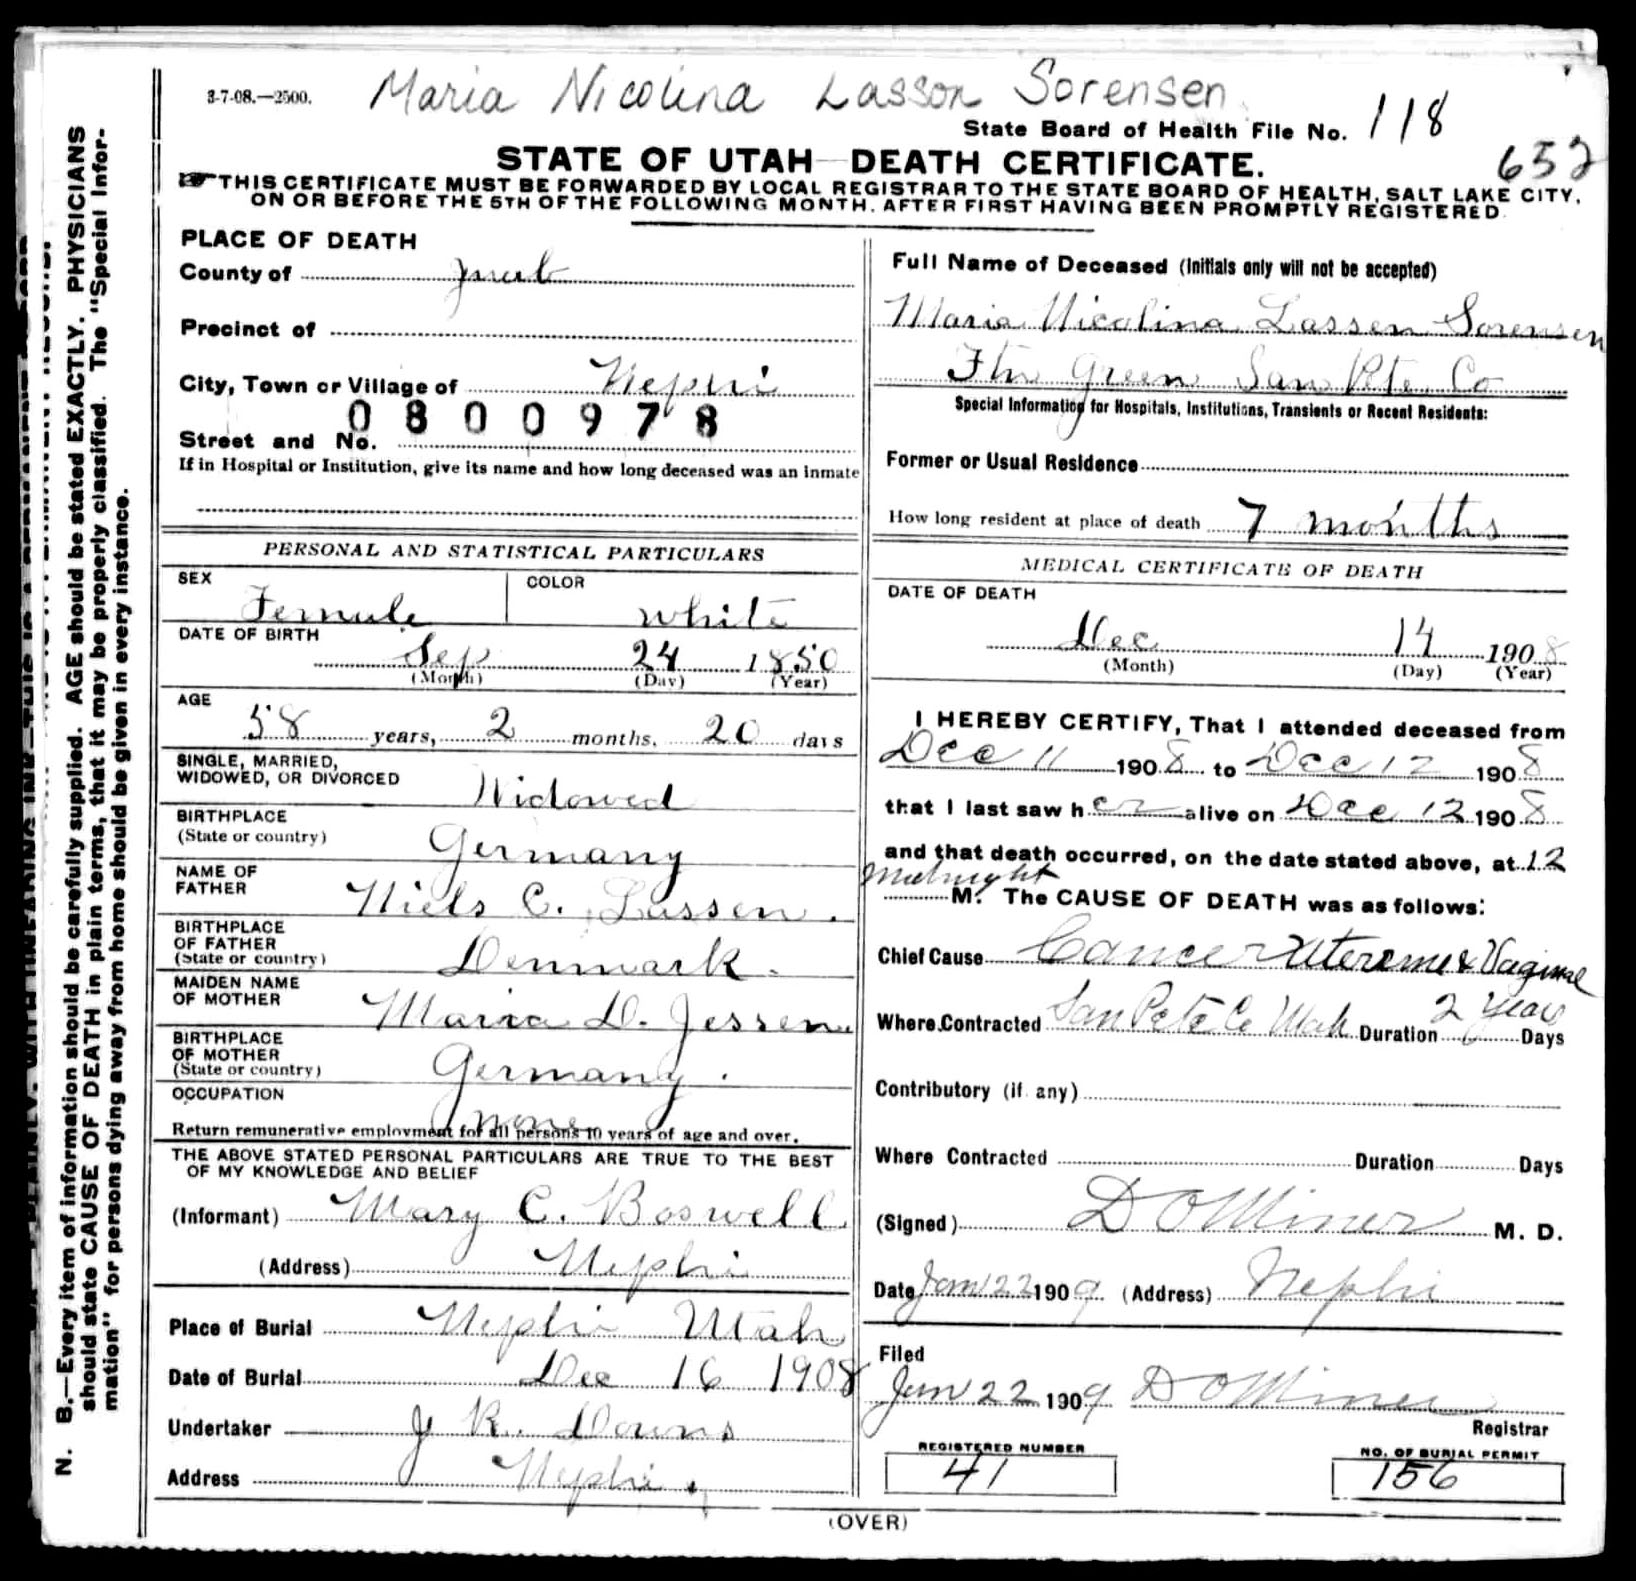 3-7-08.—2500.
Maria Nicolina Lasson Sorensen
State Board of Health File No. 118
652
STATE OF UTAH—DEATH CERTIFICATE.
THIS CERTIFICATE MUST BE FORWARDED BY LOCAL REGISTRAR TO THE STATE BOARD OF HEALTH, SALT LAKE CITY,
ON OR BEFORE THE 5TH OF THE FOLLOWING MONTH, AFTER FIRST HAVING BEEN PROMPTLY REGISTERED.
N. B.—Every item of information should be carefully supplied. AGE should be stated EXACTLY. PHYSICIANS
should state CAUSE OF DEATH in plain terms, that it may be properly classified. The "Special Infor-
mation" for persons dying away from home should be given in every instance.
PLACE OF DEATH
County of Juab
Precinct of
City, Town or Village of Nephi
0800978
Street and No.
If in Hospital or Institution, give its name and how long deceased was an inmate
PERSONAL AND STATISTICAL PARTICULARS
SEX Female COLOR White
DATE OF BIRTH
Sep 24 1850
(Month) (Day) (Year)
AGE
58 years, 2 months, 20 days
SINGLE, MARRIED,
WIDOWED, OR DIVORCED Widowed
BIRTHPLACE
(State or country) Germany
NAME OF
FATHER Niels C. Lassen.
BIRTHPLACE
OF FATHER
(State or country) Denmark.
MAIDEN NAME
OF MOTHER Maria D. Jessen
BIRTHPLACE
OF MOTHER
(State or country) Germany.
OCCUPATION
none
Return remunerative employment for all persons 10 years of age and over.
THE ABOVE STATED PERSONAL PARTICULARS ARE TRUE TO THE BEST
OF MY KNOWLEDGE AND BELIEF
(Informant) Mary C. Boswell
(Address) Nephi
Place of Burial Nephi Utah
Date of Burial Dec 16 1908
Undertaker J R. Downs
Address Nephi.
Full Name of Deceased (Initials only will not be accepted)
Maria Nicolina Lassen Sorensen
Ftn Green San Pete Co
Special Information for Hospitals, Institutions, Transients or Recent Residents:
Former or Usual Residence
How long resident at place of death 7 months
MEDICAL CERTIFICATE OF DEATH
DATE OF DEATH
Dec 14 1908
(Month) (Day) (Year)
I HEREBY CERTIFY, That I attended deceased from
Dec 11 1908 to Dec 12 1908
that I last saw her alive on Dec 12 1908
and that death occurred, on the date stated above, at 12
midnight M. The CAUSE OF DEATH was as follows:
Chief Cause Cancer Uterine & Vaginal
Where Contracted San Pete Co Utah Duration 2 years Days
Contributory (if any)
Where Contracted Duration Days
(Signed) D O Miner M. D.
Date Jan 22 1909 (Address) Nephi
Filed
Jan 22 1909 D O Miner
Registrar
REGISTERED NUMBER
41
NO. OF BURIAL PERMIT
156
(OVER)